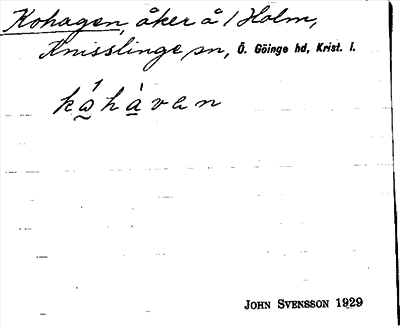 Kohagen, åker å 1 Holm,
Knisslinge sn, Ö. Göinge hd, Krist. l.
kǻ̰hàvan
JOHN SVENSSON 1929